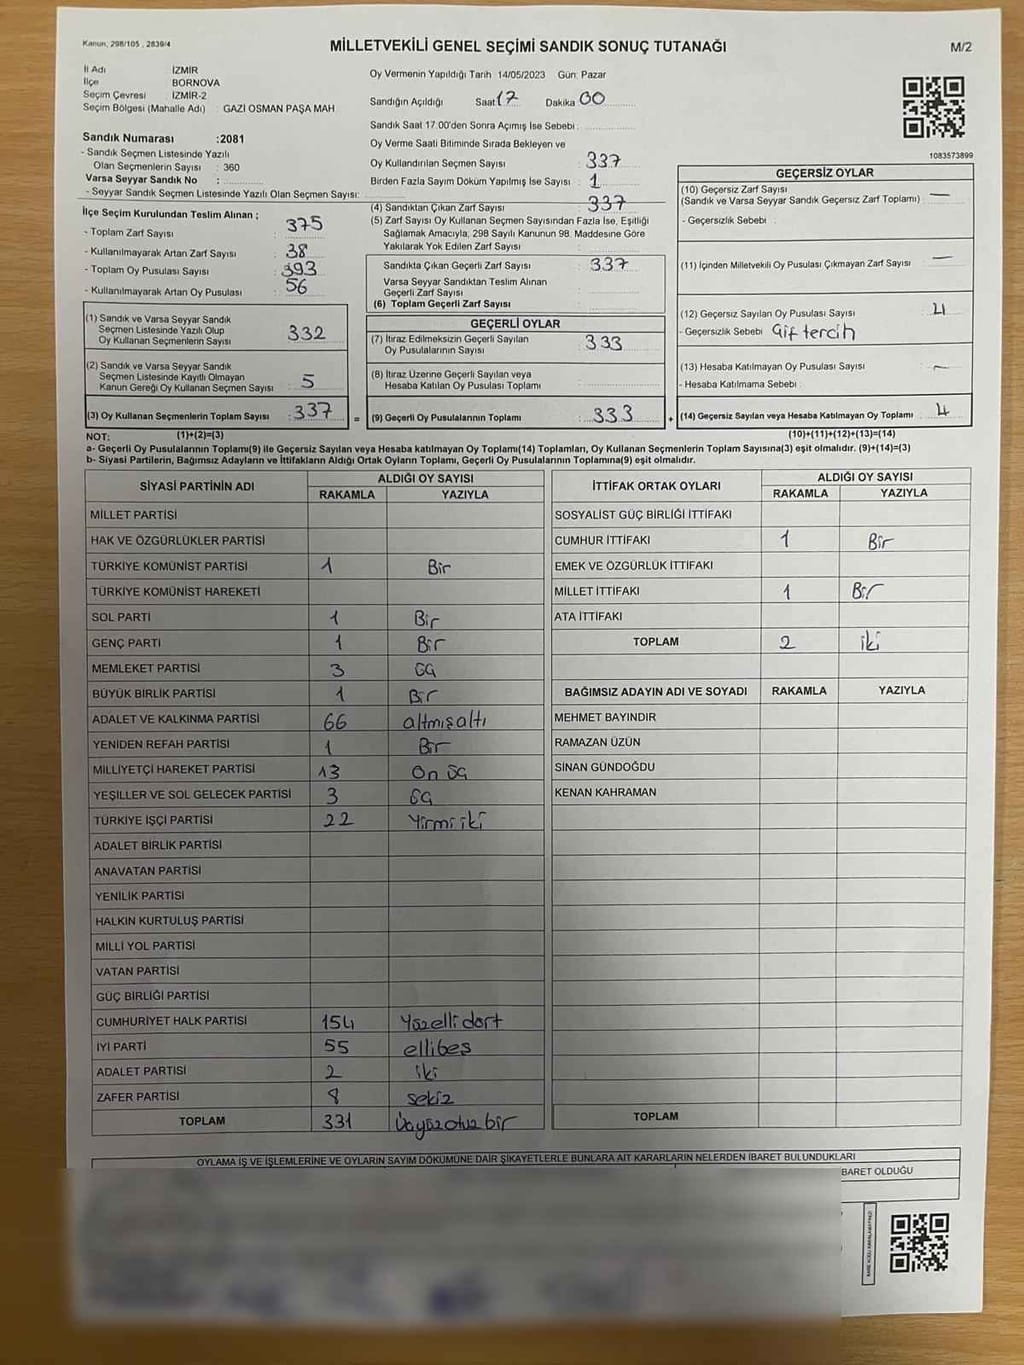 Kanun, 298/105 , 2839/4
MİLLETVEKİLİ GENEL SEÇİMİ SANDIK SONUÇ TUTANAĞI
M/2
İl Adı İZMİR
İlçe BORNOVA
Seçim Çevresi İZMİR-2
Seçim Bölgesi (Mahalle Adı) GAZİ OSMAN PAŞA MAH
Sandık Numarası :2081
- Sandık Seçmen Listesinde Yazılı
Olan Seçmenlerin Sayısı : 360
Varsa Seyyar Sandık No :
- Seyyar Sandık Seçmen Listesinde Yazılı Olan Seçmen Sayısı:
İlçe Seçim Kurulundan Teslim Alınan ;
- Toplam Zarf Sayısı 375
- Kullanılmayarak Artan Zarf Sayısı 38
- Toplam Oy Pusulası Sayısı 393
- Kullanılmayarak Artan Oy Pusulası 56
(1) Sandık ve Varsa Seyyar Sandık
Seçmen Listesinde Yazılı Olup
Oy Kullanan Seçmenlerin Sayısı 332
(2) Sandık ve Varsa Seyyar Sandık
Seçmen Listesinde Kayıtlı Olmayan
Kanun Gereği Oy Kullanan Seçmen Sayısı 5
(3) Oy Kullanan Seçmenlerin Toplam Sayısı : 337 =
(1)+(2)=(3)
Oy Vermenin Yapıldığı Tarih 14/05/2023 Gün: Pazar
Sandığın Açıldığı Saat 17 Dakika 00
Sandık Saat 17:00'den Sonra Açımış İse Sebebi :
Oy Verme Saati Bitiminde Sırada Bekleyen ve
Oy Kullandırılan Seçmen Sayısı : 337
Birden Fazla Sayım Döküm Yapılmış İse Sayısı : 1
(4) Sandıktan Çıkan Zarf Sayısı 337
(5) Zarf Sayısı Oy Kullanan Seçmen Sayısından Fazla İse, Eşitliği
Sağlamak Amacıyla, 298 Sayılı Kanunun 98. Maddesine Göre
Yakılarak Yok Edilen Zarf Sayısı
Sandıkta Çıkan Geçerli Zarf Sayısı : 337
Varsa Seyyar Sandıktan Teslim Alınan
Geçerli Zarf Sayısı
(6) Toplam Geçerli Zarf Sayısı
GEÇERLİ OYLAR
(7) İtiraz Edilmeksizin Geçerli Sayılan
Oy Pusulalarının Sayısı : 333
(8) İtiraz Üzerine Geçerli Sayılan veya
Hesaba Katılan Oy Pusulası Toplamı
(9) Geçerli Oy Pusulalarının Toplamı : 333 +
1083573899
GEÇERSİZ OYLAR
(10) Geçersiz Zarf Sayısı
(Sandık ve Varsa Seyyar Sandık Geçersiz Zarf Toplamı) —
- Geçersizlik Sebebi :
(11) İçinden Milletvekili Oy Pusulası Çıkmayan Zarf Sayısı —
(12) Geçersiz Sayılan Oy Pusulası Sayısı : 4
- Geçersizlik Sebebi Çift tercih
(13) Hesaba Katılmayan Oy Pusulası Sayısı : —
- Hesaba Katılmama Sebebi :
(14) Geçersiz Sayılan veya Hesaba Katılmayan Oy Toplamı : 4
(10)+(11)+(12)+(13)=(14)
NOT:
a- Geçerli Oy Pusulasının Toplamı(9) ile Geçersiz Sayılan veya Hesaba katılmayan Oy Toplamı(14) Toplamları, Oy Kullanan Seçmenlerin Toplam Sayısına(3) eşit olmalıdır. (9)+(14)=(3)
b- Siyasi Partilerin, Bağımsız Adayların ve İttifakların Aldığı Ortak Oyların Toplamı, Geçerli Oy Pusulalarının Toplamına(9) eşit olmalıdır.
SİYASİ PARTİNİN ADI ALDIĞI OY SAYISI
RAKAMLA YAZIYLA
MİLLET PARTİSİ
HAK VE ÖZGÜRLÜKLER PARTİSİ
TÜRKİYE KOMÜNİST PARTİSİ 1 Bir
TÜRKİYE KOMÜNİST HAREKETİ
SOL PARTİ 1 Bir
GENÇ PARTİ 1 Bir
MEMLEKET PARTİSİ 3 üç
BÜYÜK BİRLİK PARTİSİ 1 Bir
ADALET VE KALKINMA PARTİSİ 66 altmışaltı
YENİDEN REFAH PARTİSİ 1 Bir
MİLLİYETÇİ HAREKET PARTİSİ 13 On üç
YEŞİLLER VE SOL GELECEK PARTİSİ 3 üç
TÜRKİYE İŞÇİ PARTİSİ 22 Yirmi iki
ADALET BİRLİK PARTİSİ
ANAVATAN PARTİSİ
YENİLİK PARTİSİ
HALKIN KURTULUŞ PARTİSİ
MİLLİ YOL PARTİSİ
VATAN PARTİSİ
GÜÇ BİRLİĞİ PARTİSİ
CUMHURİYET HALK PARTİSİ 154 Yüzelli dört
İYİ PARTİ 55 ellibeş
ADALET PARTİSİ 2 iki
ZAFER PARTİSİ 8 sekiz
TOPLAM 331 Üçyüzotuz bir
İTTİFAK ORTAK OYLARI ALDIĞI OY SAYISI
RAKAMLA YAZIYLA
SOSYALİST GÜÇ BİRLİĞİ İTTİFAKI
CUMHUR İTTİFAKI 1 Bir
EMEK VE ÖZGÜRLÜK İTTİFAKI
MİLLET İTTİFAKI 1 Bir
ATA İTTİFAKI
TOPLAM 2 iki
BAĞIMSIZ ADAYIN ADI VE SOYADI RAKAMLA YAZIYLA
MEHMET BAYINDIR
RAMAZAN ÜZÜN
SİNAN GÜNDOĞDU
KENAN KAHRAMAN
TOPLAM
OYLAMA İŞ VE İŞLEMLERİNE VE OYLARIN SAYIM DÖKÜMÜNE DAİR ŞİKAYETLERLE BUNLARA AİT KARARLARIN NELERDEN İBARET BULUNDUKLARI
BARET OLDUĞU